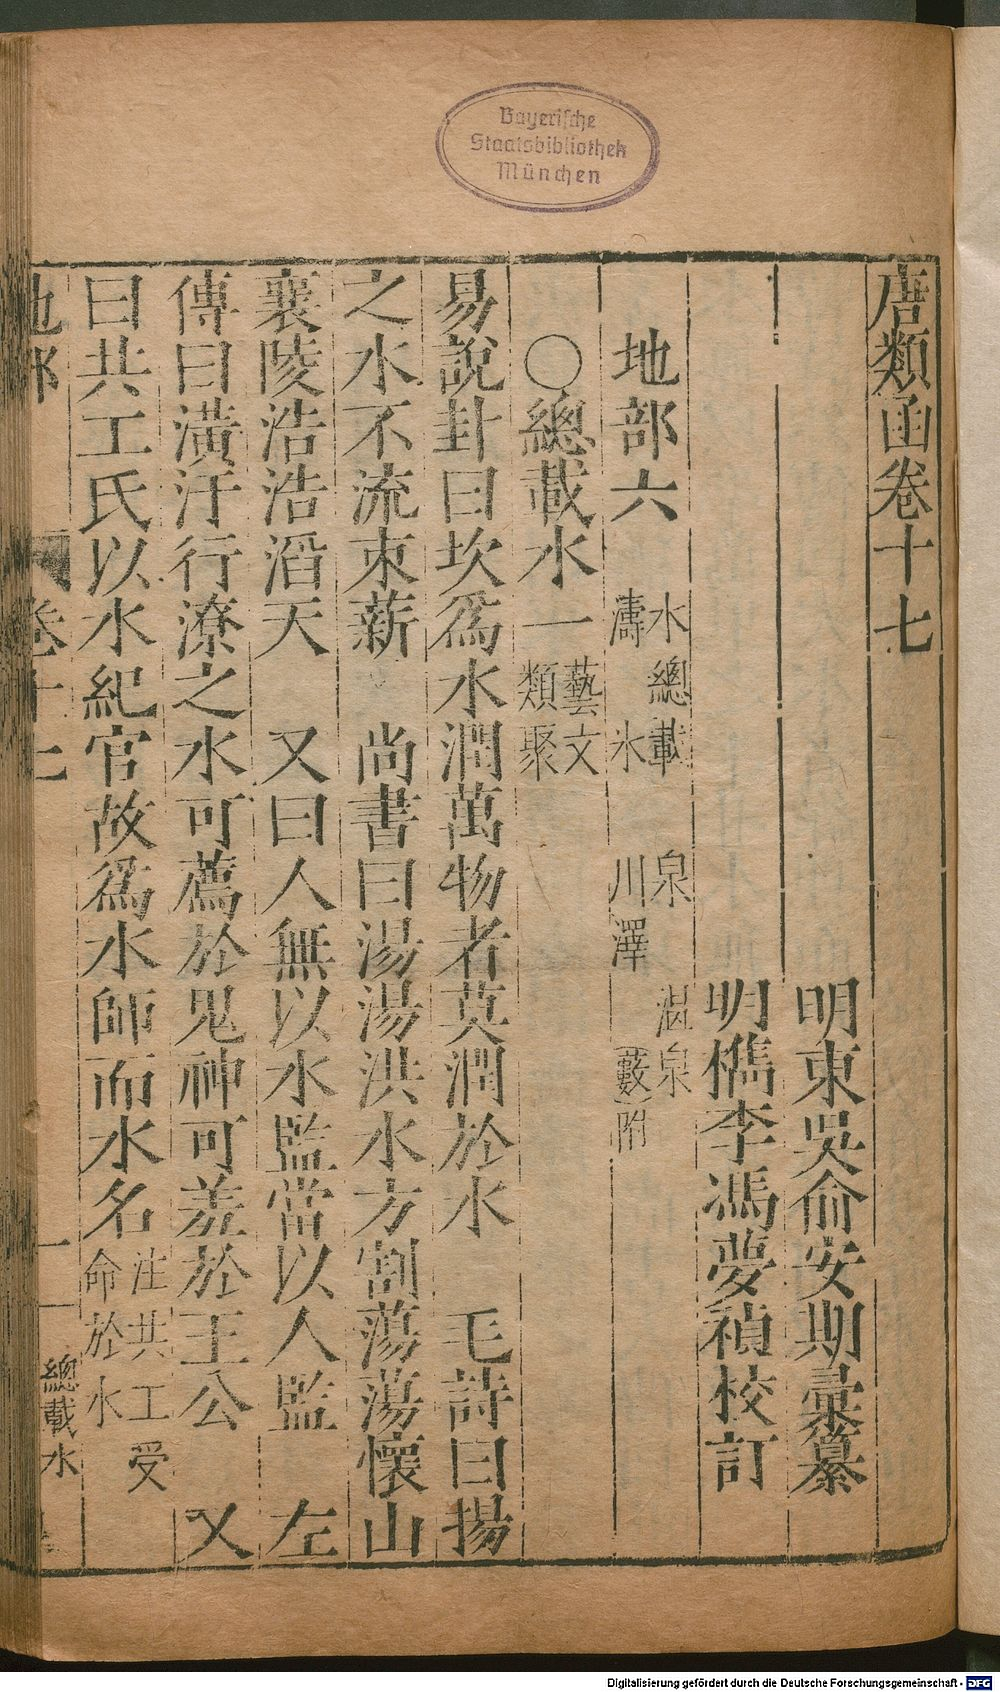 Bayerische
Staatsbibliothek
München
唐類函卷十七
明東吳俞安期彙纂
明檇李馮夢禎校訂
地部六
水總載 泉 溫泉
濤 氷 川澤 (藪)附
○總載水一
藝文
類聚
易說卦曰坎爲水潤萬物者莫潤於水 毛詩曰揚
之水不流束薪 尚書曰湯湯洪水方割蕩蕩懷山
襄陵浩浩滔天 又曰人無以水監當以人監 左
傳曰潢汙行潦之水可薦於鬼神可羞於王公 又
曰共工氏以水紀官故爲水師而水名
注共工受
命於水
地部
卷十七
一
總載水
Digitalisierung gefördert durch die Deutsche Forschungsgemeinschaft - DFG